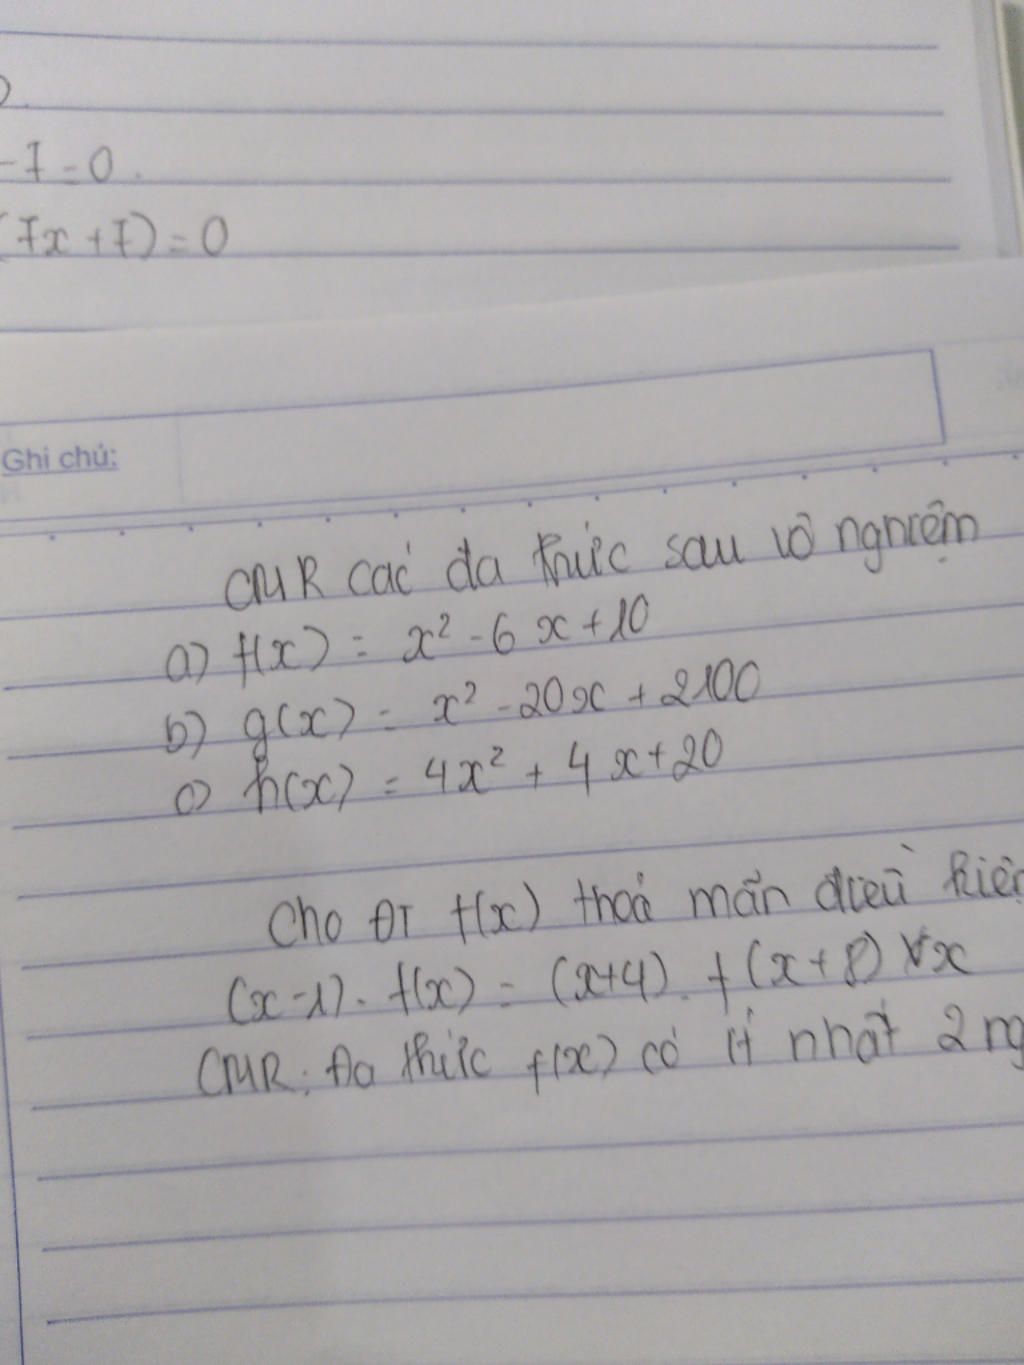 -7=0.
(7x+7)=0
Ghi chú:
CMR các đa thức sau vô nghiệm
a) f(x) = x² - 6x + 10
b) g(x) = x² - 20x + 2100
c) h(x) = 4x² + 4x + 20
Cho ĐT f(x) thoả mãn điều kiện
(x-1). f(x) = (x+4). f(x+8) ∀x
CMR: Đa thức f(x) có ít nhất 2 ng